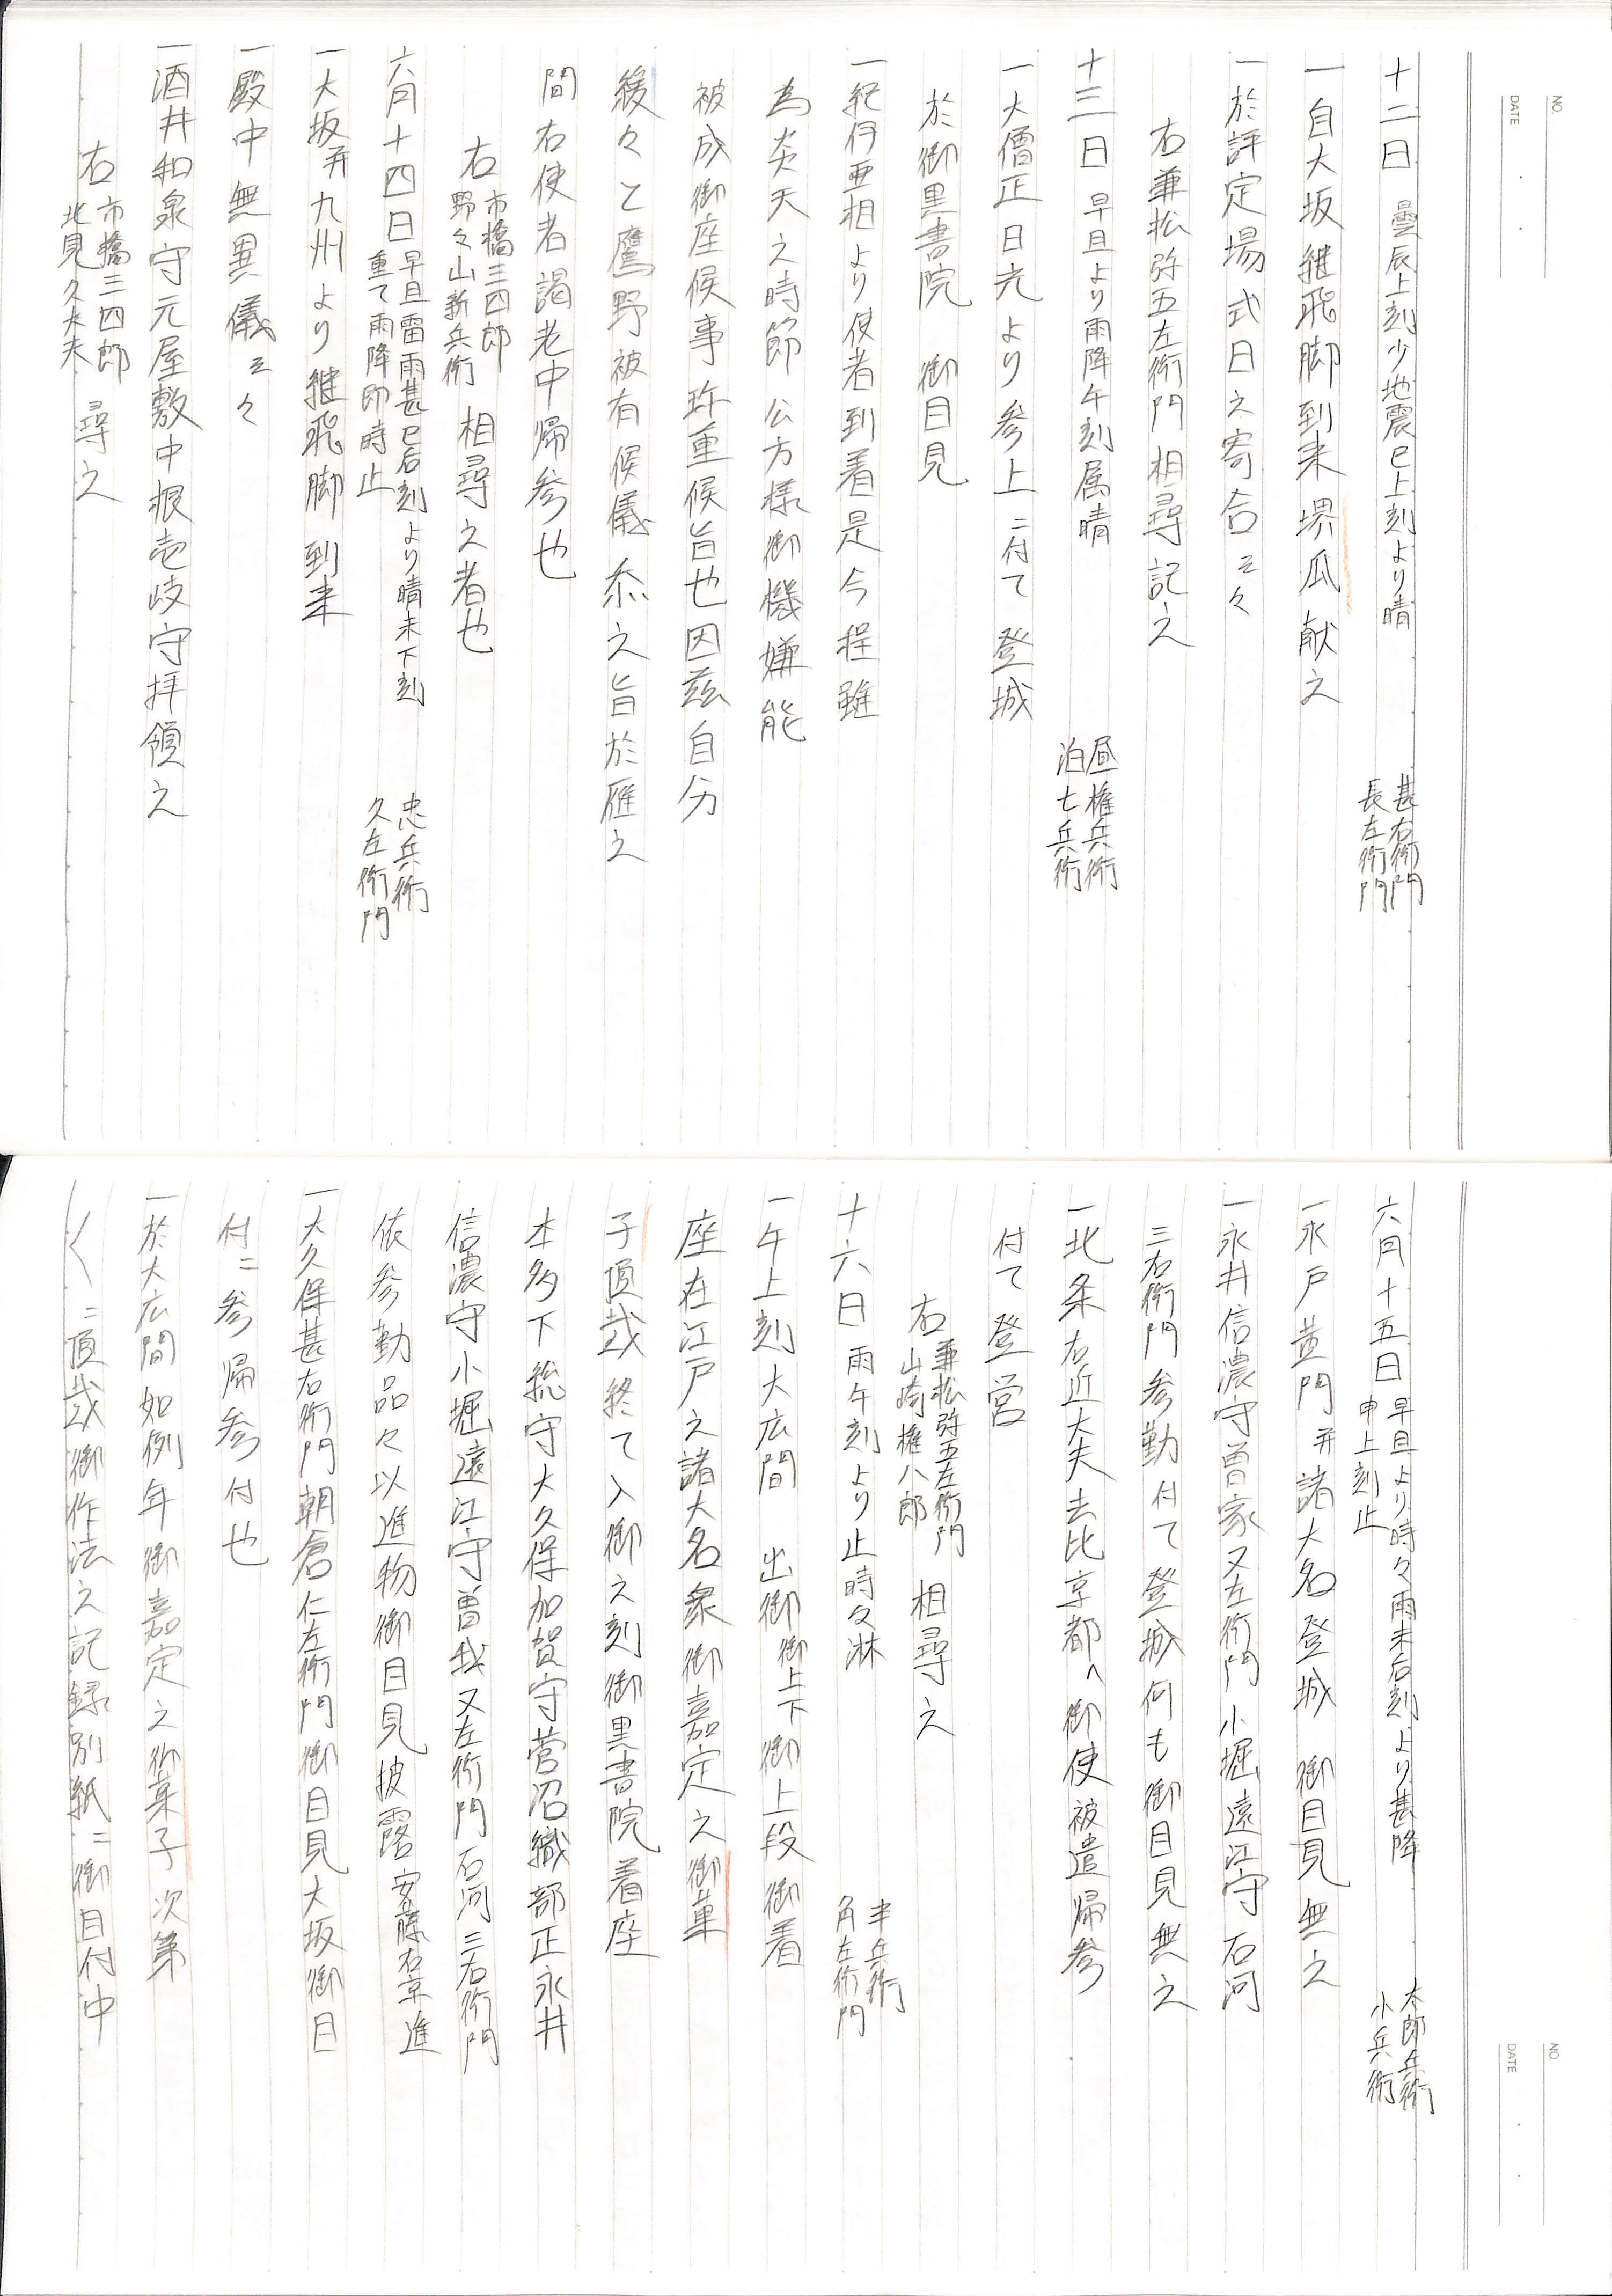 NO.
DATE
十二日 曇辰上刻少地震巳上刻より晴 甚右衛門 長左衛門
一自大坂継飛脚到来堺瓜献之
一於評定場式日之寄合云々
右兼松弥五左衛門相尋記之
十三日 早旦より雨降午刻属晴 昼権兵衛 泊七兵衛
一大僧正日光より参上ニ付て登城
於御黒書院 御目見
一紀伊亜相より使者到着是今程雖
為炎天之時節 公方様御機嫌能
被成御座候事珎重候旨也因茲自分
緩々と鷹野被有候儀忝之旨於雁之
間右使者謁老中帰参也
右 市橋三四郎 野々山新兵衛 相尋之者也
六月十四日 早旦雷雨甚巳后刻より晴未下刻 重て雨降即時止 忠兵衛 久左衛門
一大坂并九州より継飛脚到来
一殿中無異儀云々
一酒井和泉守元屋敷中根壱岐守拝領之
右 市橋三四郎 北見久太夫 尋之
NO.
DATE
六月十五日 早旦より時々雨未后刻より甚降 申上刻止 太郎兵衛 小兵衛
一水戸黄門并諸大名登城 御目見無之
一永井信濃守曽家又左衛門小堀遠江守石河
三右衛門参勤付て登城何も御目見無之
一北条右近大夫去比京都へ御使被遣帰参
付て登営
右 兼松弥五左衛門 山崎権八郎 相尋之
十六日 雨午刻より止時々淋 半兵衛 角左衛門
一午上刻大広間 出御御上下御上段御着
座在江戸之諸大名衆御嘉定之御菓
子頂戴終て入御之刻御黒書院着座
本多下総守大久保加賀守菅沼織部正永井
信濃守小堀遠江守曽我又左衛門石河三右衛門
依参勤品々以進物御目見披露安藤右京進
一大久保甚右衛門朝倉仁左衛門御目見大坂御目
付ニ参帰参付也
一於大広間如例年御嘉定之御菓子次第
〱ニ頂戴御作法之記録別紙ニ御目付中